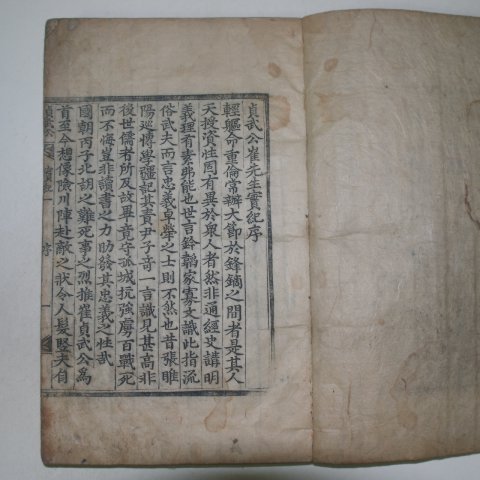 貞武公崔先生實紀序
輕軀命重倫常辦大節於鋒鏑之間者是其人
天投資性固有異於衆人者然非通經史講明
義理有素弗能也世言鈴韜家寡文識此指流
俗武夫而言忠義卓犖之士則不然也昔張睢
陽巡博學彊記其責尹子奇一言識見甚高非
後世儒者所及故畢竟守孤城抗強虜百戰死
而不悔豈非讀書之力助發其忠義之性哉
國朝丙子北胡之難死事之烈推崔貞武公爲
首至今想像險川陣赴敵之狀令人髮竪夫自
貞武公
序
一